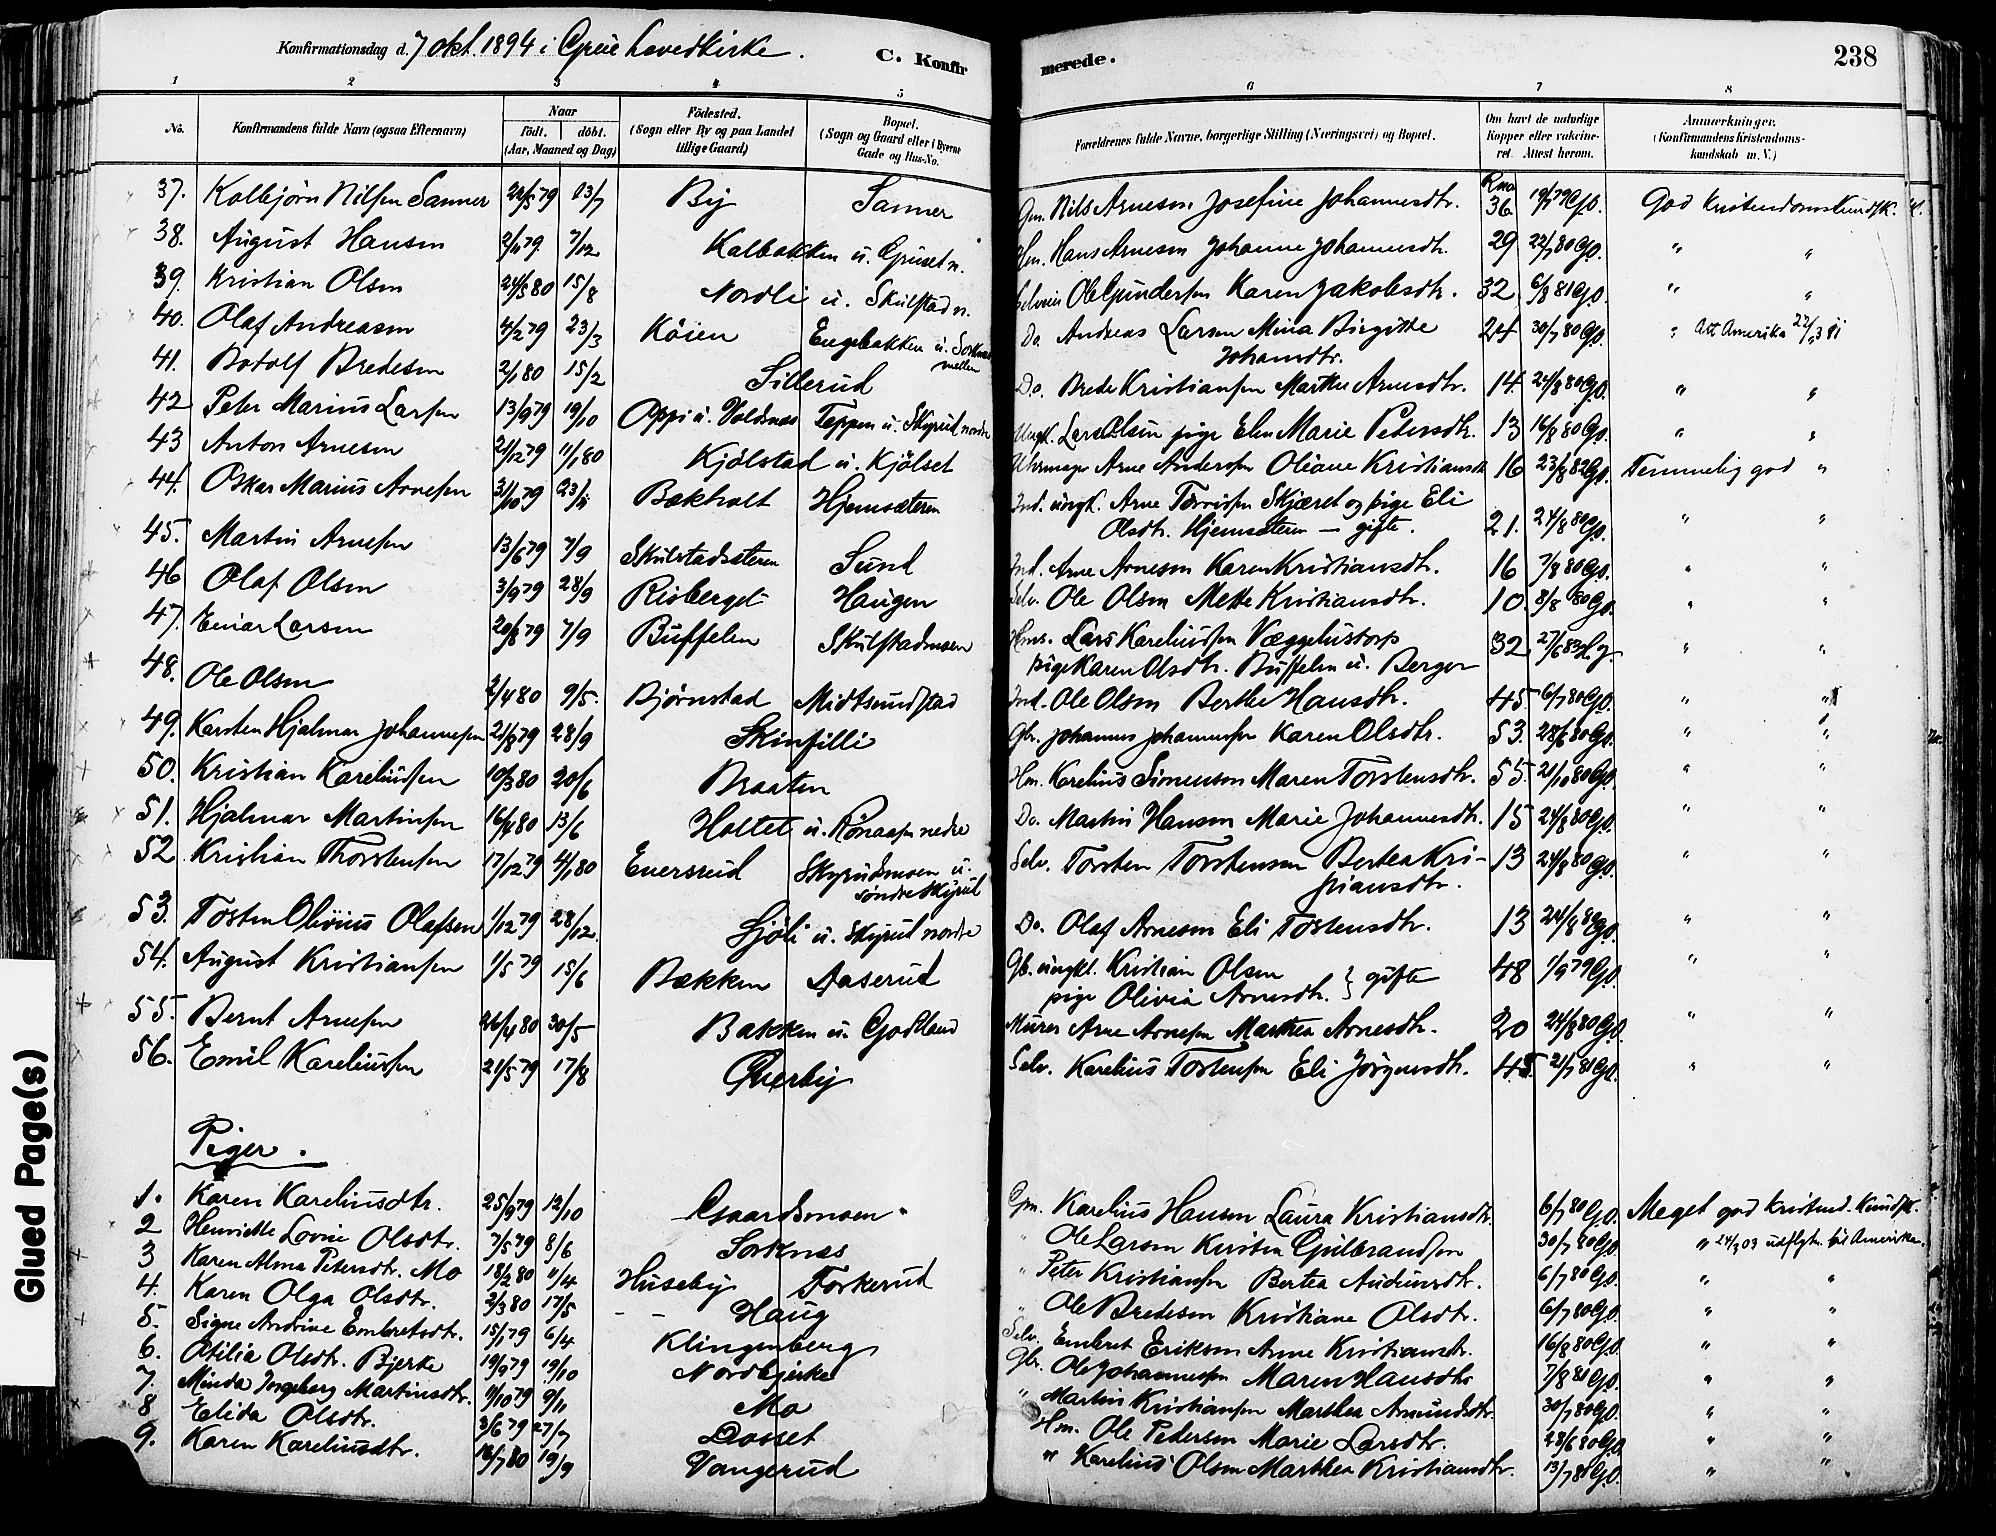 Konfirmationsdag d. 7 okt. 1894 i Grue hovedkirke.
C. Konfirmerede.
238
1 2 3 4 5 6 7 8
No.
Konfirmandens fulde Navn (ogsaa Efternavn)
Naar
födt. döbt.
(Aar, Maaned og Dag)
Födested.
(Sogn eller By og paa Landet
tillige Gaard)
Bopæl.
(Sogn og Gaard eller i Byerne
Gade og Hus-No.
Forældrenes fulde Navne, borgerlige Stilling (Næringsvei) og Bopæl.
Om havt de naturlige
Kopper eller vakcineret.
Attest herom.
Anmærkninger.
(Konfirmandens Kristendomskundskab
m. V.)
37. Kolbjørn Nilsen Sanner 13/7 By Sanner Gm. Nils Arnesen Josefine Johannesdtr. 36 God Kristendomskundsk.
38. August Hansen 2/11 79 7/12 Kalbakken u. Gruset n. Hm. Hans Arnesen Johanne Johannesdtr. 29 22/7 80 G.O. " "
39. Kristian Olsen 24/5 80 15/8 Nordli u. Skulstad n. Selveier Ole Gundersen Karen Jakobsdtr. 32 6/8 81 G.O. " "
40. Olaf Andreasen 4/2 79 23/3 Köien Engebakken u. Sorknes
mellem Do. Andreas Larsen Mina Birgitte
Johansdtr. 24 30/7 80 G.O. " Att Amerika
41. Botolf Bredesen 2/1 80 15/2 Sillerud Do. Brede Kristiansen Marthe Arnesdtr. 14. 24/8 80 G.O. " "
42 Peter Marius Larsen 13/9 79 19/10 Oppi u. Voldnes Teppen u. Skyrud nordre Ungk. Lars Olsen pige Elen Marie Pedersdtr. 13 16/8 80 G.O. " "
43 Anton Arnesen 21/12 79 11/1 80 Kjölstad u. Kjölset Uhrmager Arne Andersen Oliane Kristiansdtr 16 23/8 82 G.O. Temmelig god "
44. Oskar Marius Arnesen 31/10 79 23/11 Bakholt Hjemsæteren Ind. ungk. Arne Skjæret og pige Eli
Olsdtr. Hjemsæteren — gifte. 21. 24/8 80 G.O. " "
45. Martin Arnesen 13/6 79 7/9 Skulstadsæteren Sund Ind. Arne Arnesen Karen Kristiansdtr. 16 7/8 80 G.O. " "
46 Olaf Olsen 3/9 79 28/9 Risberget Haugen Selv. Ole Olsen Mette Kristiansdtr. 10 8/8 80 G.O. " "
47. Einar Larsen 20/8 79 7/9 Buffelen Skulstadmoen Hms. Lars Kareliussen Væggehustorp
pige Karen Olsdtr. Buffelen u. Berger 32 27/6 83 " "
48. Ole Olsen 2/4 80 9/5. Bjørnstad Midtsundstad Ind. Ole Olsen Berthe Hansdtr. 45. 6/7 80 G.O. " "
49. Karsten Hjalmar Johannesen 21/8 79 28/9 Skinfilli Gbr. Johannes Johannesen Karen Olsdtr. 53. 28/6 80 G.O. " "
50. Kristian Kareliussen 10/3 80 20/6 Braaten Hm. Karelius Simenson Maren Torstensdtr. 55. 21/10 80 G.O. " "
51. Hjalmar Martinsen 16/4 80 13/6 Holtet u. Rönaasen nedre Do. Martin Hansen Marie Johannesdtr. 15 24/8 80 G.O. " "
52 Kristian Thorstensen 17/12 79 4/1 80 Enersrud Skyrudsmoen u.
søndre Skyrud Selv. Torsten Torstensen Berthea Kristiansdtr. 13 24/8 80 G.O. " "
53. Tosten Olivius Olafsen 1/12 79 28/12. Sjöli u. Skyrud nordre Do. Olaf Arnesen Eli Tostensdtr. 13 24/8 80 G.O. " "
54. August Kristiansen 1/5 79 15/6 Bækken Aaserud Gb. ungkl. Kristian Olsen
pige Olivia Arnesdtr. } gifte 48 1/9 79 G.O. " "
55. Bernt Arnesen 26/4 80 30/5 Bakken u. Godtland Murer Arne Arnesen Marthea Arnesdtr. 20 24/8 80 G.O. " "
56. Emil Kareliussen 21/5 79 17/8 Qverby Selv. Karelius Tostensen Eli Jörgensdtr. 45. 21/7 81 G.O. " "
Piger.
1. Karen Kareliusdtr. 25/9 79 12/10 Gaardsmoen. Gm. Karelius Hansen Laura Kristiansdtr. 6/7 80 G.O. Meget god Kristend. Kundsk.
2 Henriette Lovise Olsdtr. 7/5 79 8/6 Sorknes " Ole Larsen Kirsten Gulbrandsen 30/7 80 G.O. " 24/3 03 udflyt. til Amerika.
3 Karen Alma Petersdtr. Mo 18/2 80 11/4 Huseby Torkerud " Peter Kristiansen Berthea Audunsdtr. 6/7 80 G.O. " "
4. Karen Olga Olsdtr. 2/3 80 17/5 Haug " Ole Bredesen Kristiane Olsdtr. 6/7 80 G.O. " "
5. Signe Andrine Embretsdtr. 15/1 79 6/4 Klingenberg Selv. Embret Erikson Anne Kristiansdtr. 16/8 80 G.O. " "
6. Otilia Olsdtr. Bjerke 19/9 79 19/10 Nordbjerke Gbr. Ole Johannessen Maren Hansdtr 7/8 81 G.O. " "
7. Minda Ingeborg Martinsdtr. 9/10 79 9/11 Mo " Martin Kristiansen Marthea Amundsdtr. 30/7 80 G.O. " "
8 Elida Olsdtr. 3/6 79 27/7 Dosset Hm. Ole Pedersen Marie Larsdtr. 28/6 80 G.O. " "
9. Karen Kareliusdtr. 16/7 80 19/9 Vangerud " Karelius Olsen Marthea Kristiansdtr. 13/7 81 G.O. " "
Glued Page(s)